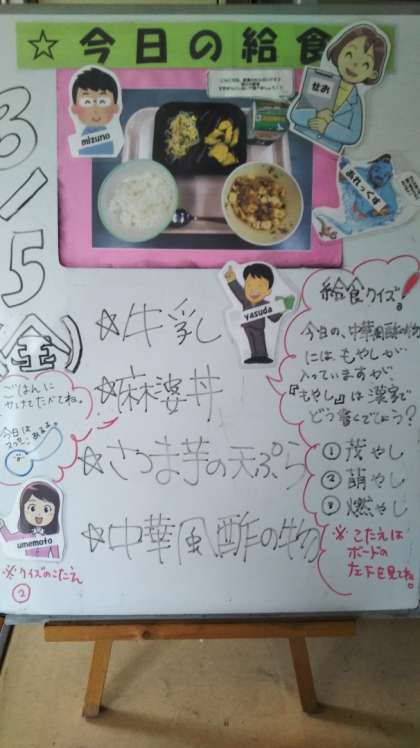 ☆今日の給食
せお
mizuno
あれっくす
3/5
(金)
yasuda
☆牛乳
☆麻婆丼
☆さつま芋の天ぷら
☆中華風酢の物
ごはんに
かけてたべてね。
今日は
umemoto
※クイズのこたえ
②
給食クイズ!
今日の、中華風酢の物
にはもやしが
入っていますが
『もやし』は漢字で
どう書くでしょう?
①茂やし
②萌やし
③燃やし
※こたえは
ボードの
左下を見てね。